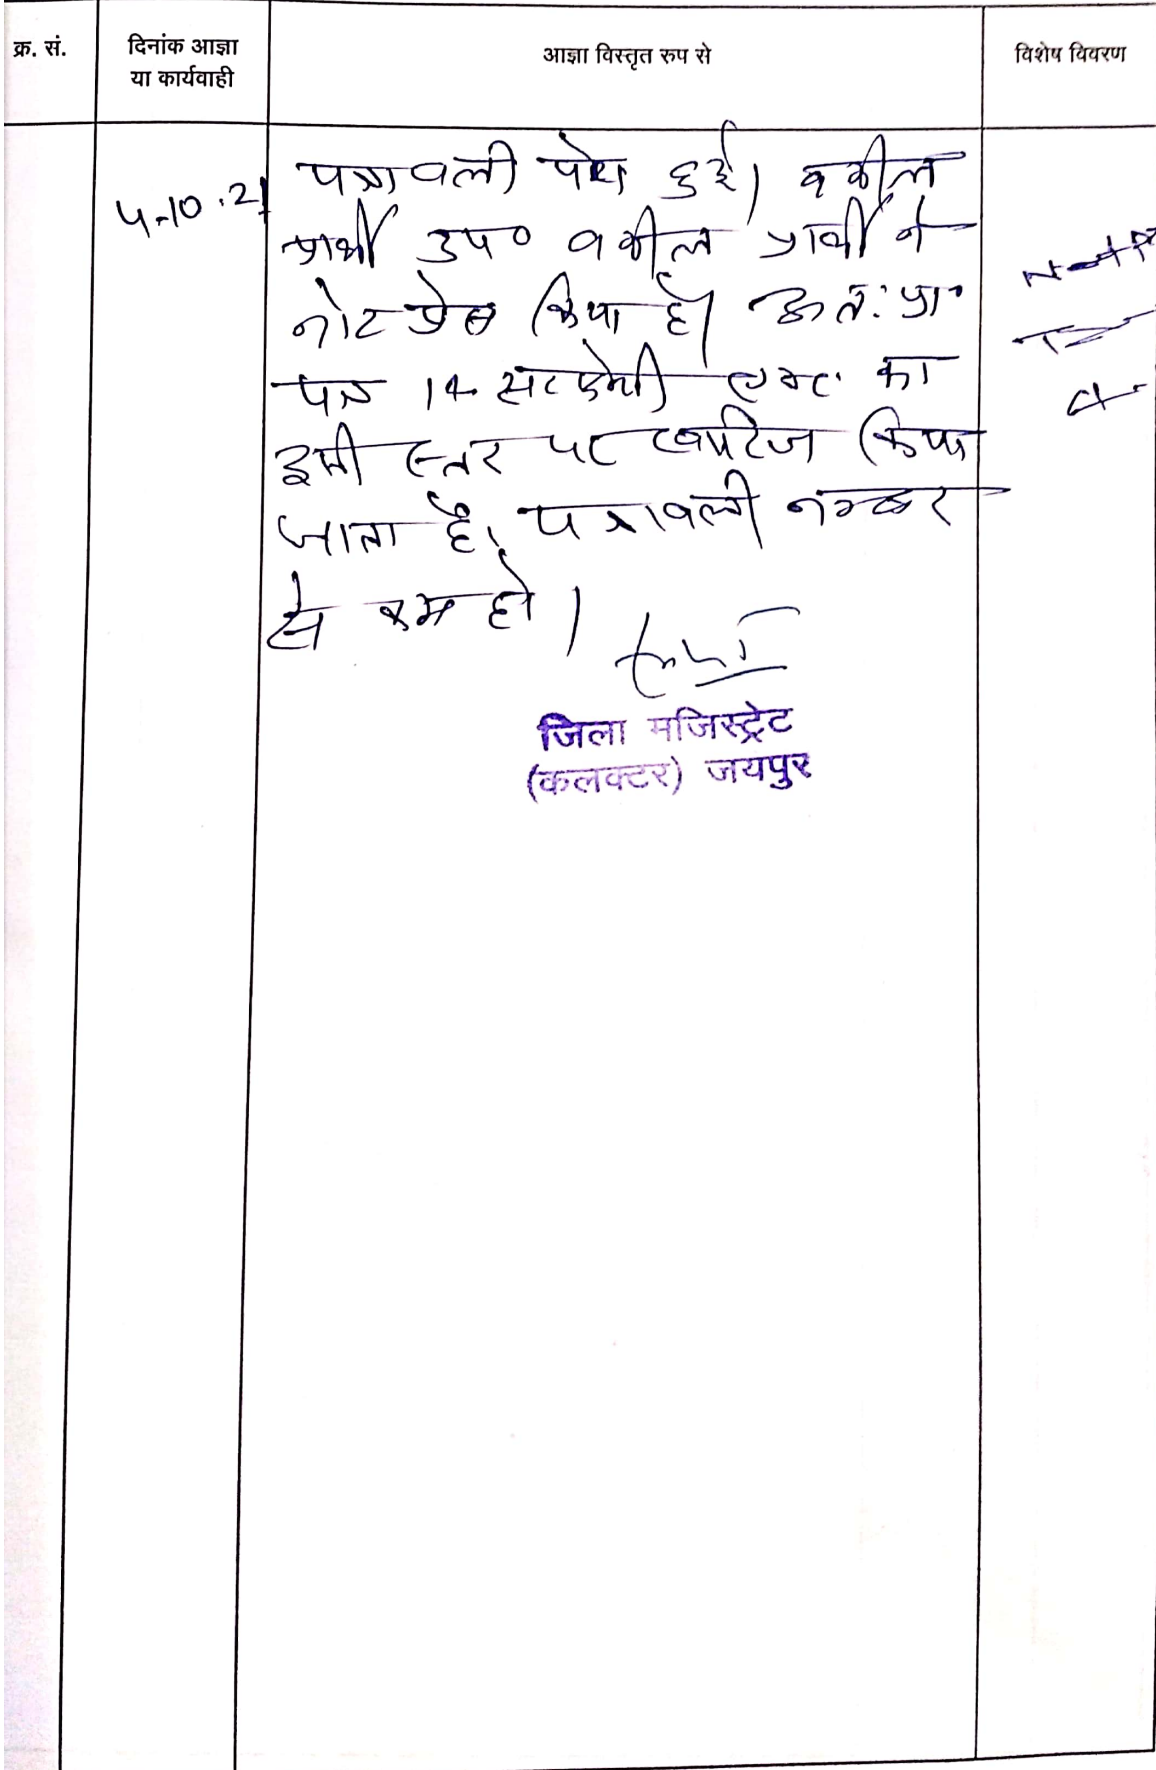 क्र. सं.
दिनांक आज्ञा
या कार्यवाही
आज्ञा विस्तृत रुप से
विशेष विवरण
4.10.21
पत्रावली पेश हुई। वकील
प्रार्थी उप० वकील प्रार्थी ने
नोट प्रेस किया है। अतः प्रा०
पत्र 14 सरफेसी एक्ट का
इसी स्तर पर खारिज किया
जाता है। पत्रावली नम्बर
से कम हो।
जिला मजिस्ट्रेट
(कलक्टर) जयपुर